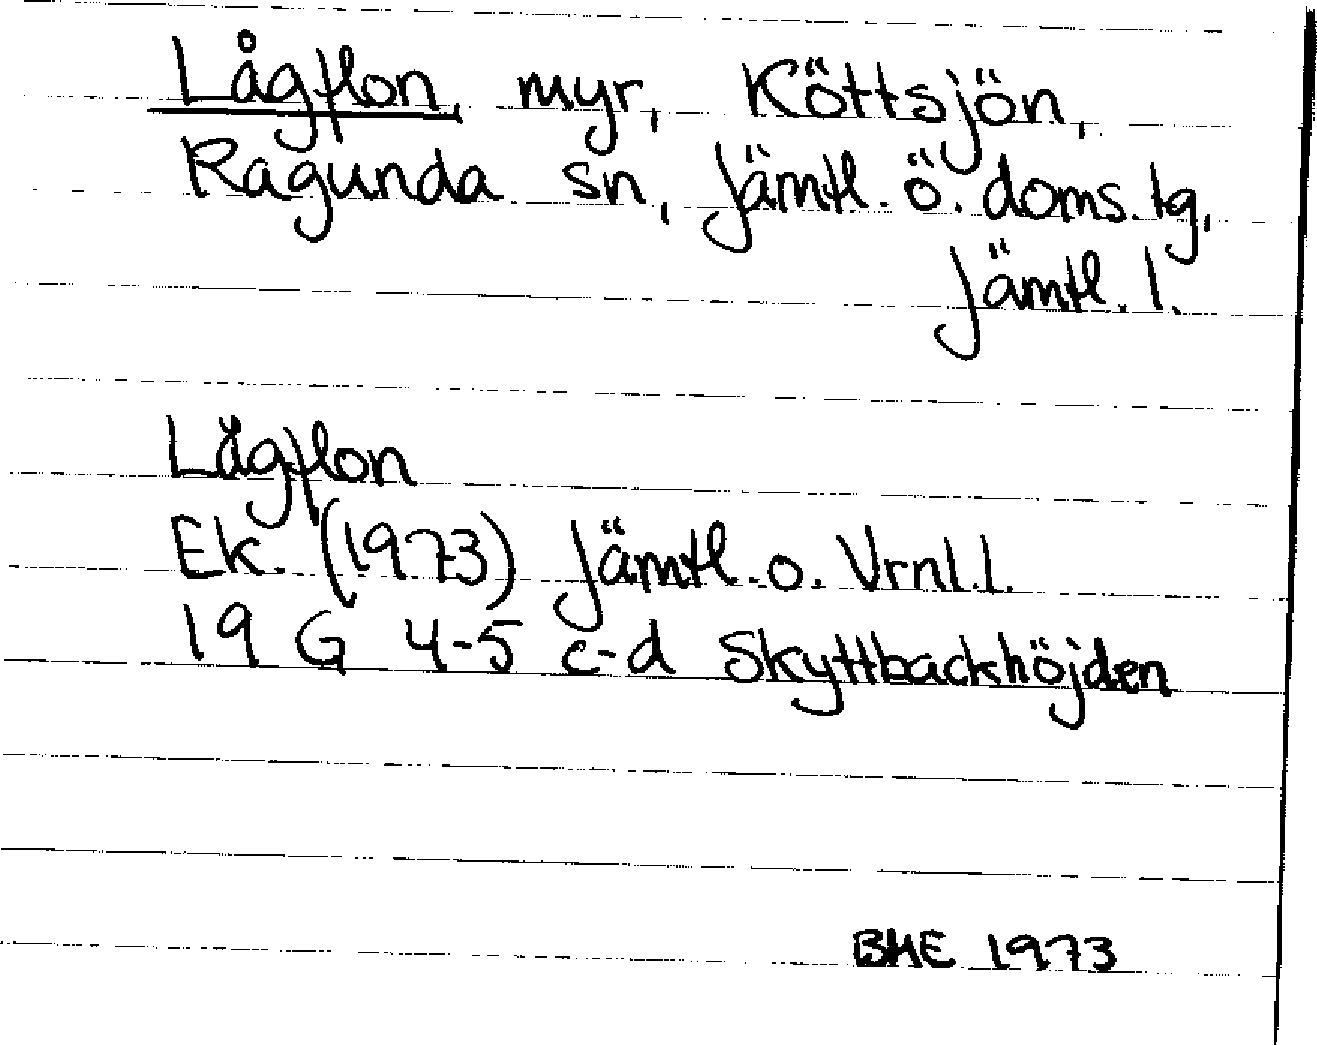 Lågflon, myr, Köttsjön,
Ragunda sn, Jämtl. ö. doms. tg,
Jämtl. l.
Lågflon
Ek. (1973) Jämtl. o. Vrnl. l.
19 G 4-5 c-d Skyttbackhöjden
BME 1973